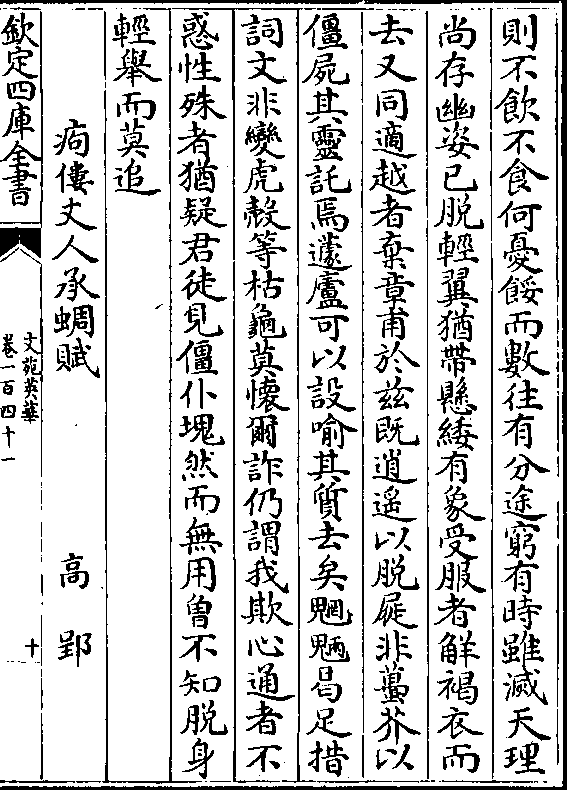 則不飲不食何憂餒而數往有分途窮有時雖滅天理
尚存幽姿已脫輕翼猶帶懸緌有象受服者解褐衣而
去又同適越者棄章甫於兹既逍遥以脫屣非蠆芥以
僵屍其靈託焉蘧廬可以設喻其質去矣魍魎曷足措
詞文非變虎殻等枯龜莫懷爾詐仍謂我欺心通者不
惑性殊者猶疑君徒見僵仆塊然而無用曾不知脫身
輕舉而莫追
痀僂丈人承蜩賦 高郢
欽定四庫全書
文苑英華
卷一百四十一
十